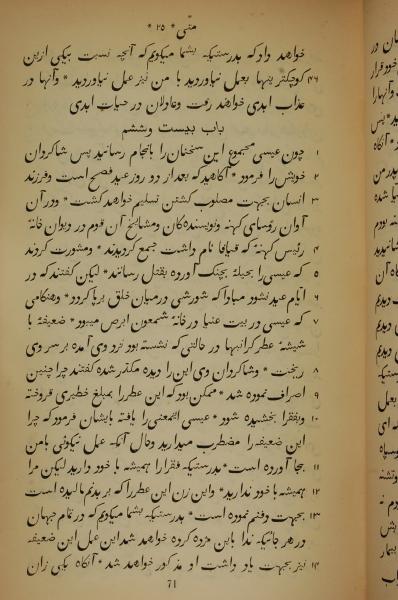 متّی * ۲۵ *
خواهد داد که بدرستیکه بشما میکویم که آنچه نسبت بیکی ازین
۴۶ کوچکترینها بعمل نیاوردید با من نیز عمل نیاوردید * وآنها در
عذاب ابدی خواهند رفت وعادلان در حیات ابدی
باب بیست وششم
۱ چون عیسی مجموع این سخنان را بانجام رسانید پس شاکردان
۲ خویش را فرمود * آکاهید که بعد از دو روز عید فصح است وفرزند
۳ انسان بجهت مصلوب کشتن تسلیم خواهد کشت * ودر آن
آوان رؤسای کهنه ونویسنده کان ومشایخ آن قوم در دیوان خانهٔ
۴ رئیس کهنه که قیافا نام داشت جمع کردیدند * ومشورت کردند
۵ که عیسی را بحیلهٔ بچنک آورده بقتل رسانند * لیکن کفتند که در
۶ ایّام عید نشود مبادا که شورشی درمیان خلق برپا کردد * وهنکامی
۷ که عیسی در بیت عنیا در خانهٔ شمعون ابرص میبود * ضعیفهٔ با
شیشهٔ عطر کرانبها در حالتی که نشسته بود نزد وی آمده بر سر وی
۸ ریخت * وشاکردان وی این را دیده مکدّر شده کفتند چرا چنین
۹ اصراف نموده شد * ممکن بود که این عطر را بمبلغ خطیری فروخته
۱۰ وبفقرا بخشیده شود * عیسی اینمعنی را یافته بایشان فرمود که چرا
این ضعیفه را مضطرب میدارید وحال آنکه عمل نیکوئی با من
۱۱ بجا آورده است * بدرستیکه فقرا را همیشه با خود دارید لیکن مرا
۱۲ همیشه با خود ندارید * واین زن این عطر را که بر بدنم مالیده است
۱۳ بجهت دفنم نموده است * بدرستیکه بشما میکویم که در تمام جهان
در هر جائیکه ندا باین مژده کرده خواهد شد این عمل این ضعیفه
۱۴ نیز بجهت یاد داشت او مذکور خواهد شد * آنکاه یکی زان
71